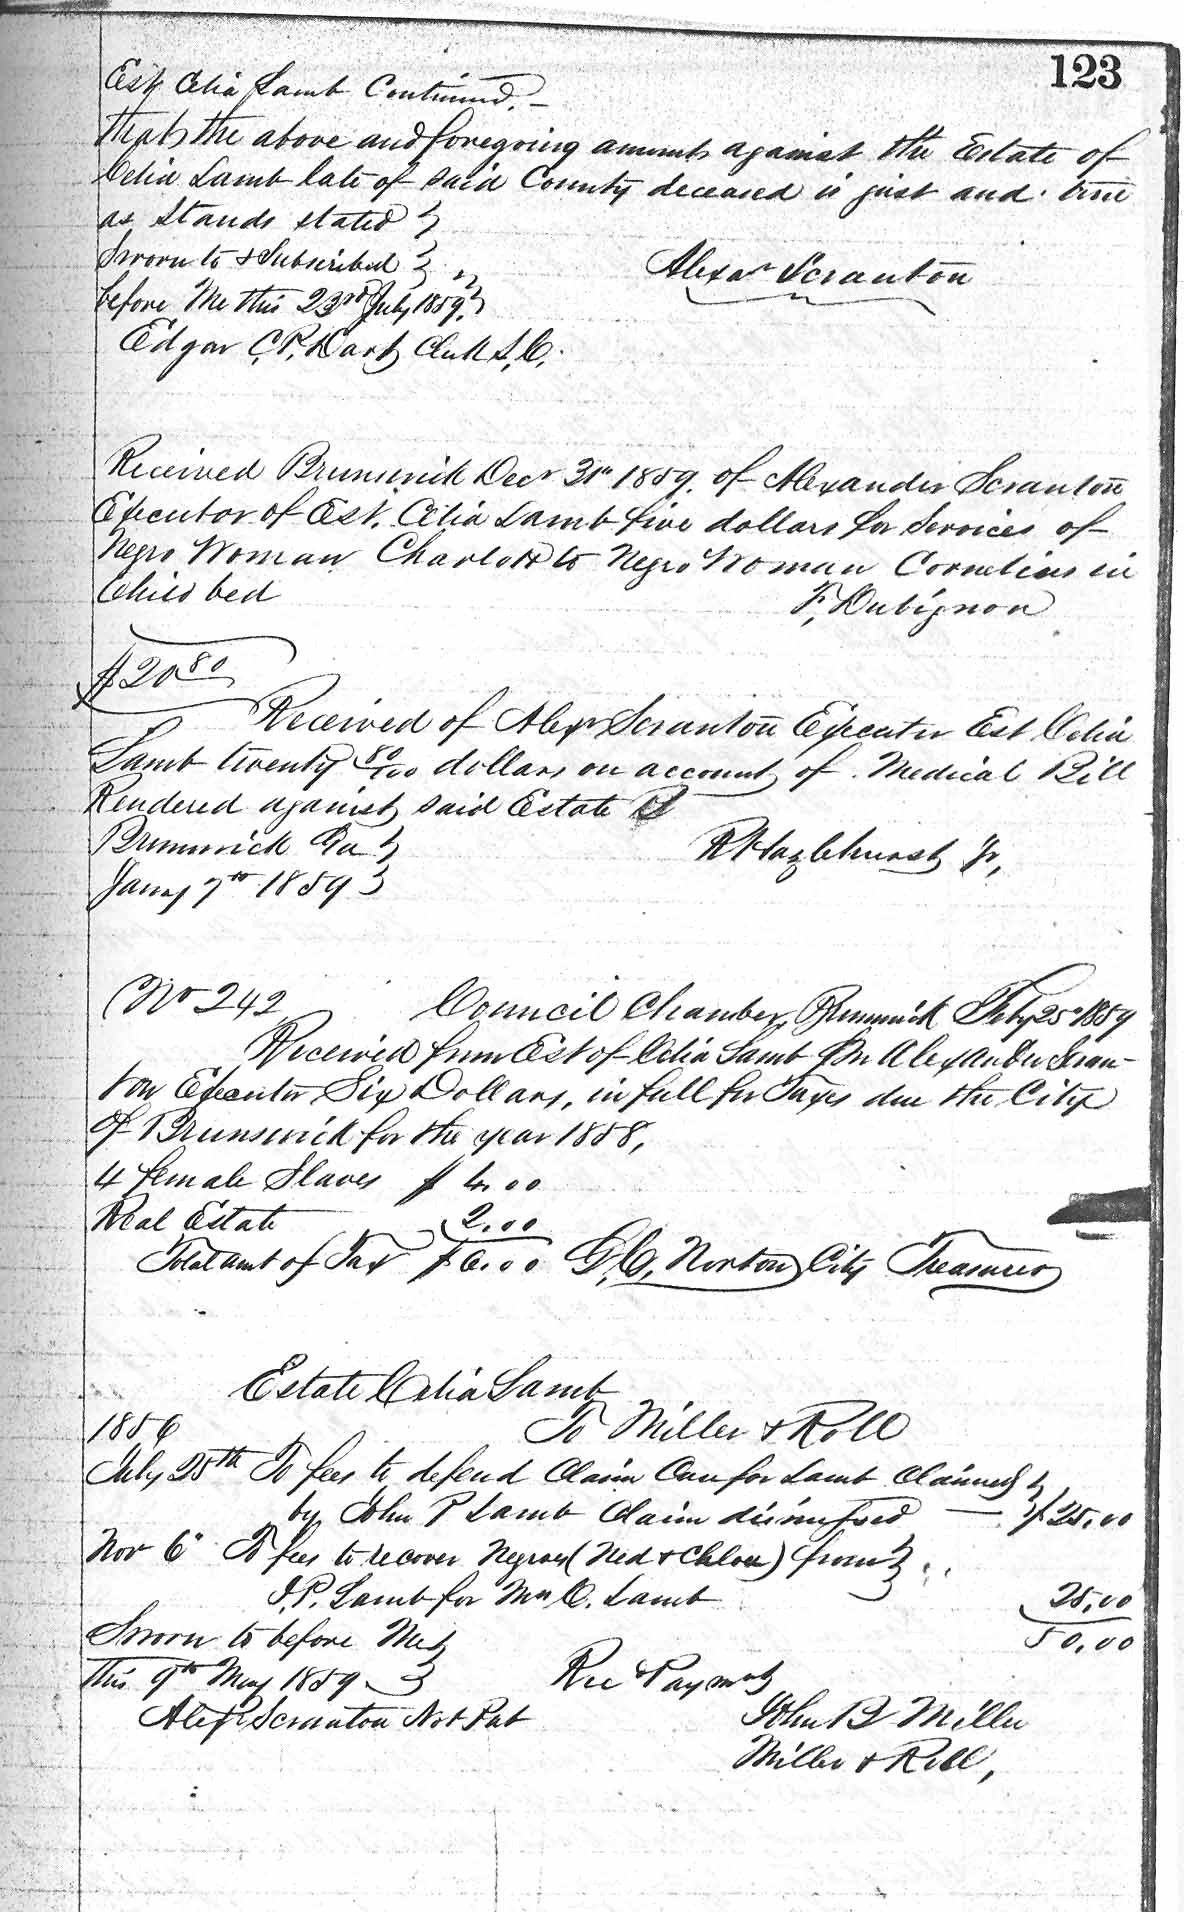 123
Est Celia Lamb Continued.
that the above and foregoing amounts against the Estate of
Celia Lamb late of said County deceased is just and true
as Stands stated
Sworn to & Subscribed
Alexr Scranton
before Me this 23rd July 1859.
Edgar C. P. Dart Clerk S. C.
Received Brunswick Decr 31st 1859. of Alexander Scranton
Executor of Est. Celia Lamb five dollars for Services of
Negro Woman Charlott to Negro Woman Cornelius in
Child bed
F. Dubignon
$20 80
Received of Alexr Scranton Executor Est Celia
Lamb twenty 80/100 dollars on account of Medical Bill
Rendered against said Estate
Brunswick Ga
R Hazlehurst Jr,
Jany 7th 1859
No 242
Council Chamber, Brunswick Feby 25th 1859
Received from Est of Celia Lamb Pr Alexander Scran-
ton Executor Six Dollars, in full for Taxes due the City
Of Brunswick for the year 1858,
4 female Slaves $ 4.00
Real Estate 2.00
Total amt of Tax $6.00 G. C. Norton City Treasurer
Estate Celia Lamb
1856 To Miller & Roll
July 25th To fees to defend Claim Case for Lamb Claimed
by John P Lamb Claim dismissed — $25.00
Nov 6" To fees to recover Negroes (Ned & Chloe) from
J. P. Lamb for Mrs C. Lamb 25.00
Sworn to before Me 50.00
this 9th May 1859
Rec Paymt
Alexr Scranton Not Pub
John B Miller
Miller & Roll,